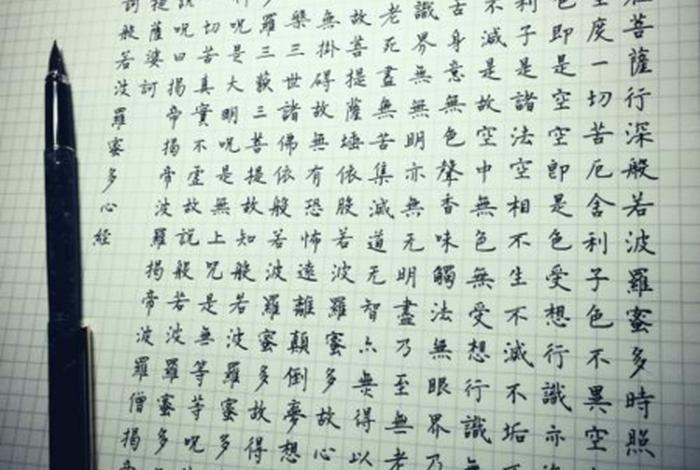 菩薩行深般若波羅蜜多時照
空度一切苦厄舍利子色不異空
色即是空空即是色受想行識亦
利子是諸法空相不生不滅不垢
不減是故空中無色無受想行識無
舌身意無色聲香味觸法無眼界乃
識界無無明亦無无明盡乃至無老
老死盡無苦集滅道无智亦無得以
故菩提薩埵依般若波羅蜜多故心
無掛礙故無有恐怖遠離顛倒夢想
槃三世諸佛依般若波羅蜜多故得
羅三藐三菩提故知般若波羅蜜多
呪是大明呪是無上咒是無等等呪
切苦真實不虛故說般若波羅蜜多
說呪曰揭帝揭帝波羅揭帝波羅僧揭帝
提薩婆訶
訶般若波羅蜜多心經